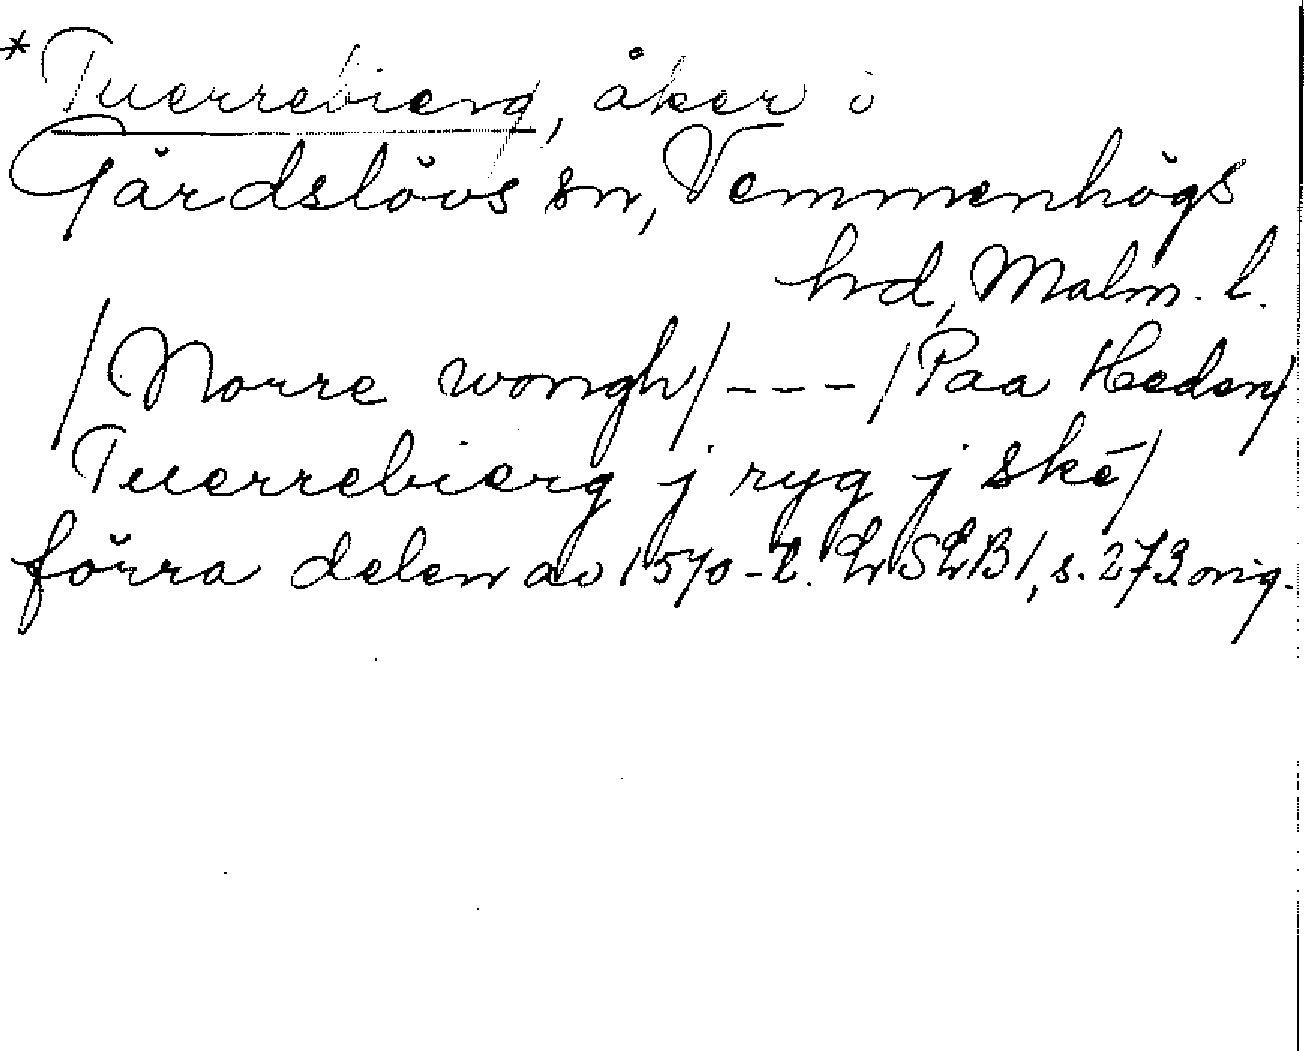 *Tuerrebierg, åker i
Gärdslövs sn, Vemmenhögs
hd, Malm. l.
/Norre wongh/ --- /Paa Heden/
Tuerrebierg j ryg j ske/
förra delen av 1570-t. LrSLB1, s. 273 orig.